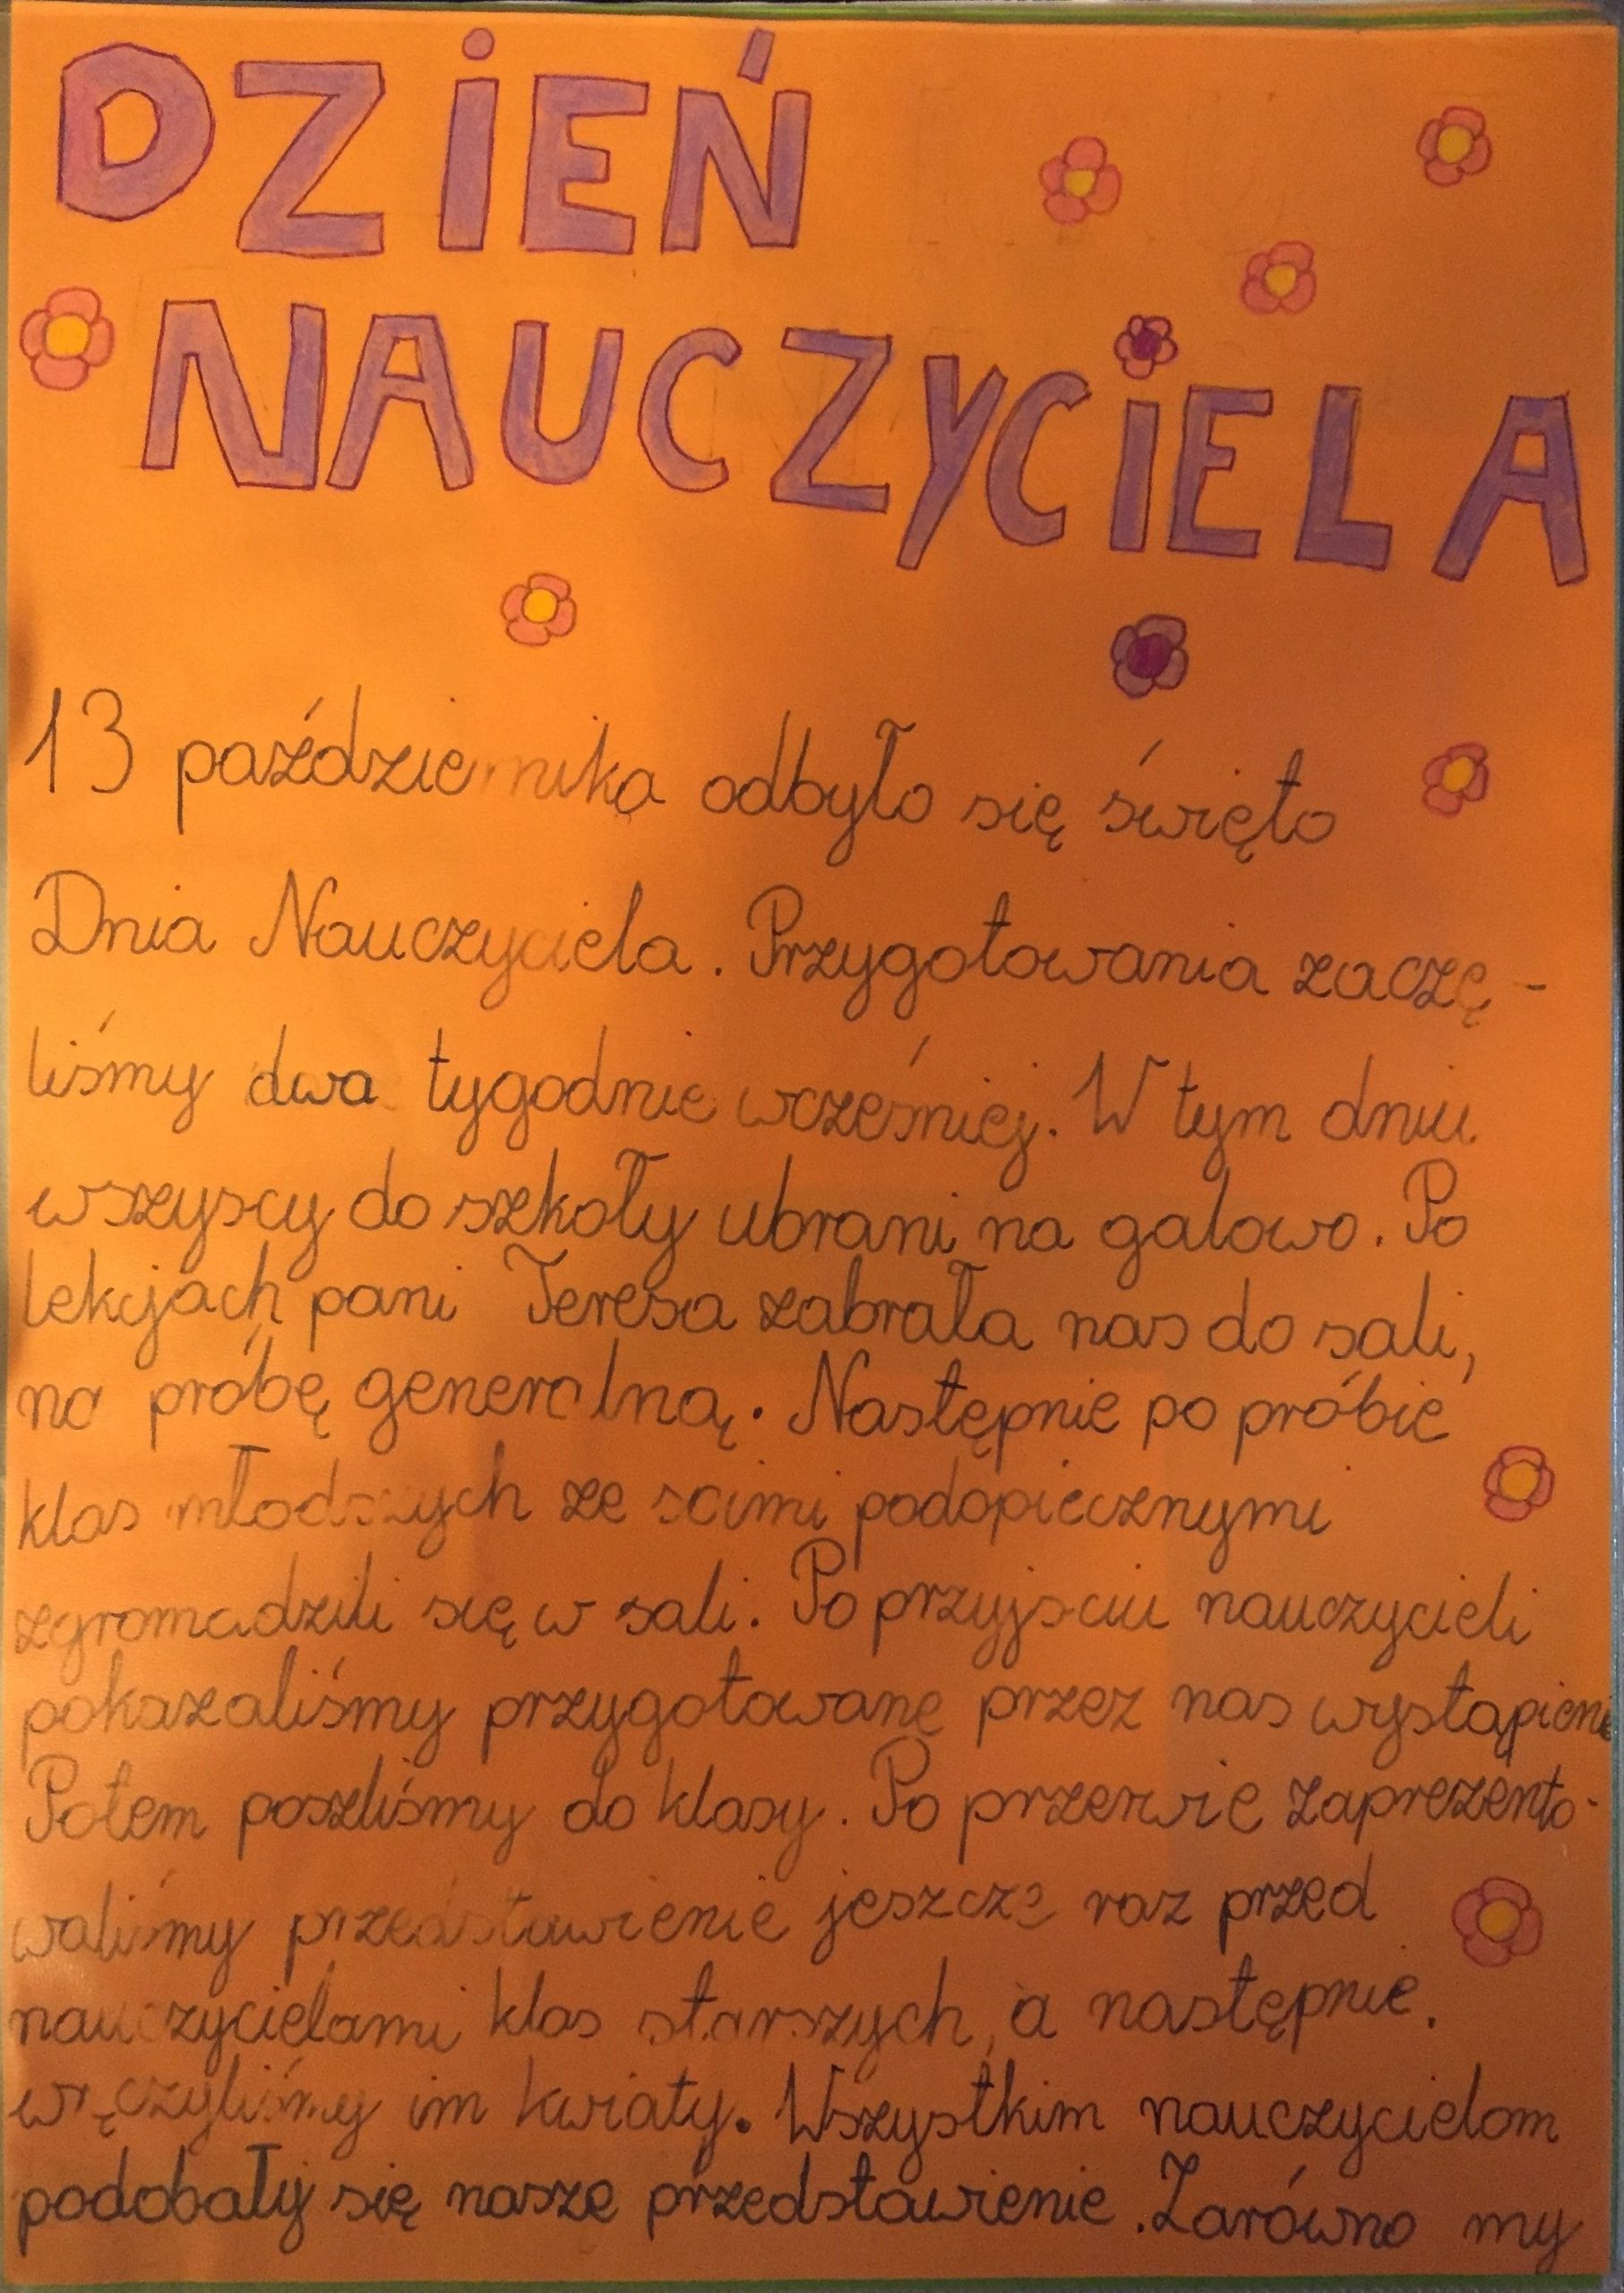 DZIEŃ
NAUCZYCIELA
13 października odbyło się święto
Dnia Nauczyciela. Przygotowania zaczę-
liśmy dwa tygodnie wcześniej. W tym dniu
wszyscy do szkoły ubrani na galowo. Po
lekcjach pani Teresa zabrała nas do sali,
na próbę generalną. Następnie po próbie
klas młodszych ze scimi podopiecznymi
zgromadzili się w sali. Po przyjsciu nauczycieli
pokazaliśmy przygotowane przez nas wystąpieni
Potem poszliśmy do klasy. Po przerwie zaprezento-
waliśmy przedstawienie jeszcze raz przed
nauczycielami klas starszych, a następnie.
wręczyliśmy im kwiaty. Wszystkim nauczycielom
podobały się nasze przedstawienie. Zarówno my